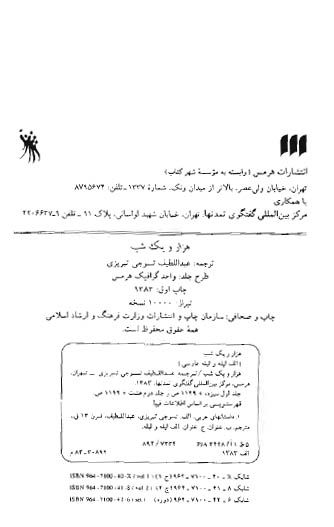 انتشارات هرمس (وابسته به مؤسسهٔ شهر کتاب)
تهران، خیابان ولی‌عصر، بالاتر از میدان ونک، شمارهٔ ۱۳۳۷ ـ تلفن: ۸۷۹۵۶۷۴
با همکاری
مرکز بین‌المللی گفتگوی تمدنها، تهران، خیابان شهید لواسانی، پلاک ۱۱ ـ تلفن ۹ـ۲۲۰۶۶۲۷
هزار و یک شب
ترجمه: عبداللطیف تسوجی تبریزی
طرح جلد: واحد گرافیک هرمس
چاپ اول: ۱۳۸۳
تیراژ: ۱۰۰۰۰ نسخه
چاپ و صحافی: سازمان چاپ و انتشارات وزارت فرهنگ و ارشاد اسلامی
همهٔ حقوق محفوظ است.
هزار و یک شب
[الف لیله و لیله. فارسی]
هزار و یک شب / ترجمه عبداللطیف تسوجی تبریزی. ـ تهران:
هرمس، مرکز بین‌المللی گفتگوی تمدنها، ۱۳۸۳.
فهرست‌نویسی بر اساس اطلاعات فیپا
۱. داستانهای عربی. الف. تسوجی تبریزی، عبداللطیف، قرن ۱۳ ق.،
مترجم. ب. عنوان. ج. عنوان: الف لیله و لیله.
۸۹۲/۷۳۳۴
الف ۱۳۸۳